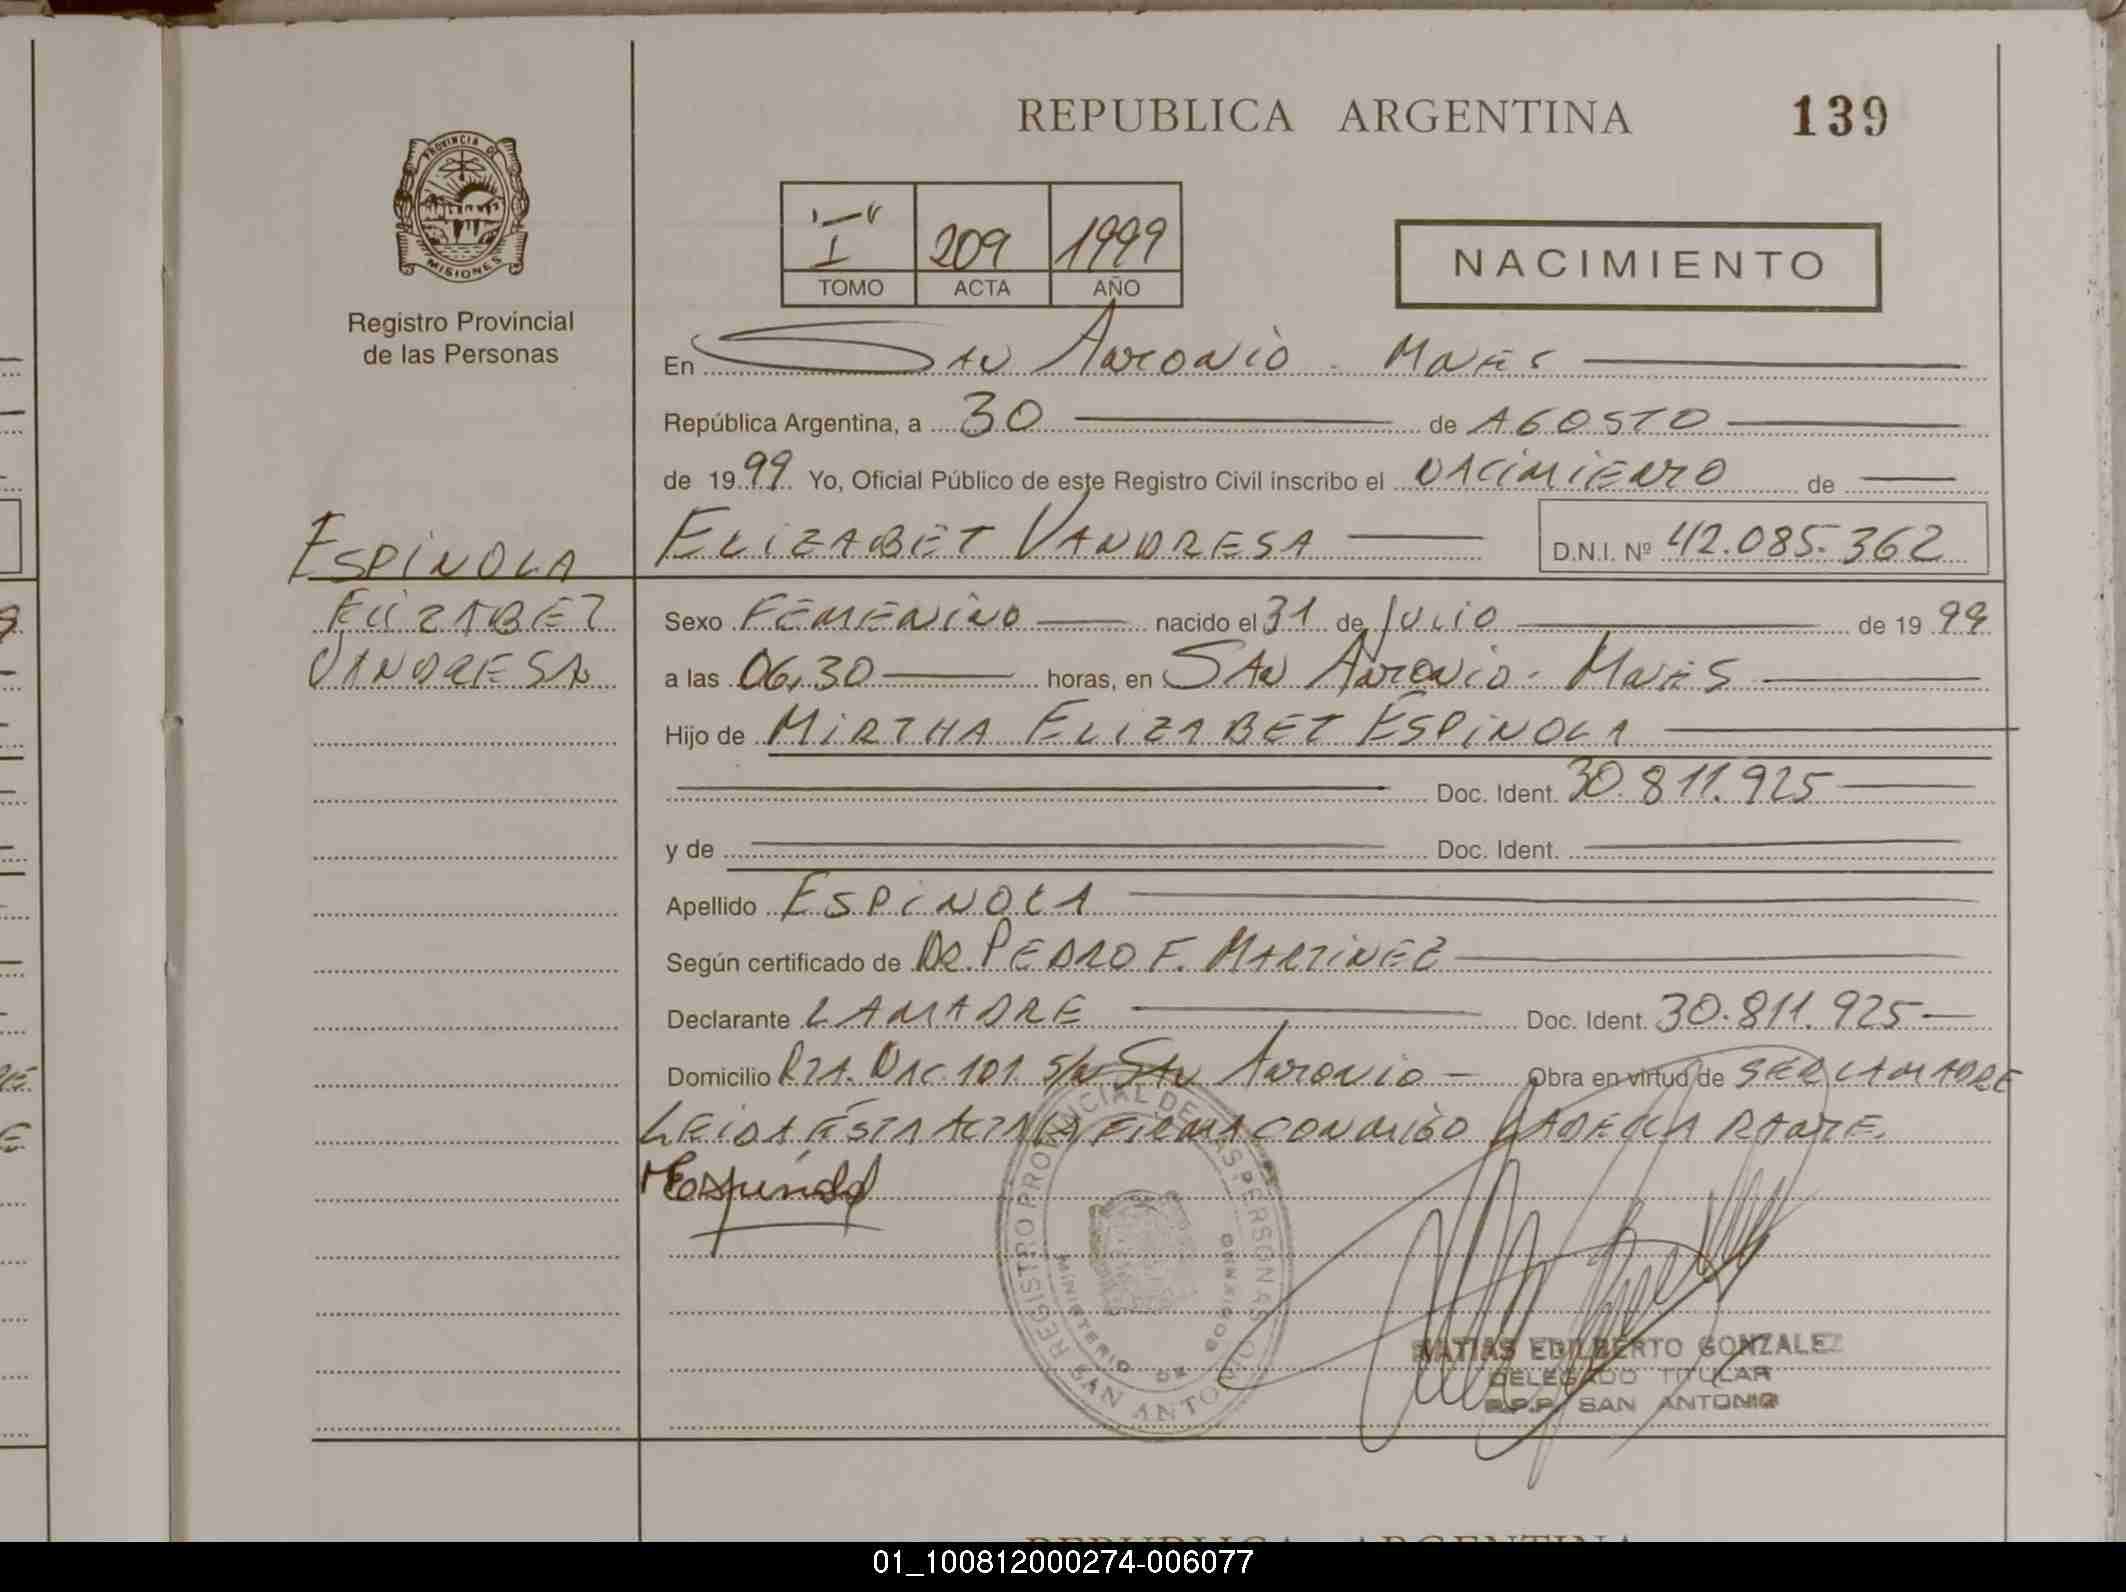 REPUBLICA ARGENTINA
139
PROVINCIA DE
MISIONES
Registro Provincial
de las Personas
I 209 1999
TOMO ACTA AÑO
NACIMIENTO
En San Antonio - Mnes
República Argentina, a 30 de AGOSTO
de 1999 Yo, Oficial Público de este Registro Civil inscribo el NACIMIENTO de
ELIZABET VANDRESA D.N.I. Nº 42.085.362
ESPINOLA
ELIZABET
VANDRESA
Sexo FEMENINO nacido el 31 de JULIO de 1999
a las 06,30 horas, en SAN ANTONIO - Mnes
Hijo de MIRTHA ELIZABET ESPINOLA
Doc. Ident. 30.811.925
y de Doc. Ident.
Apellido ESPINOLA
Según certificado de DR. PEDRO F. MARTINEZ
Declarante LA MADRE Doc. Ident. 30.811.925
Domicilio RTA. NAC. 101 S/N SAN ANTONIO - Obra en virtud de SER LA MADRE
LEIDA ESTA ACTA LA FIRMA CONMIGO LA DECLARANTE.
MEspínola
REGISTRO PROVINCIAL DE LAS PERSONAS
MINISTERIO DE GOBIERNO
SAN ANTONIO
MATIAS EDILBERTO GONZALEZ
DELEGADO TITULAR
R.P.P. SAN ANTONIO
REPUBLICA ARGENTINA
01_100812000274-006077